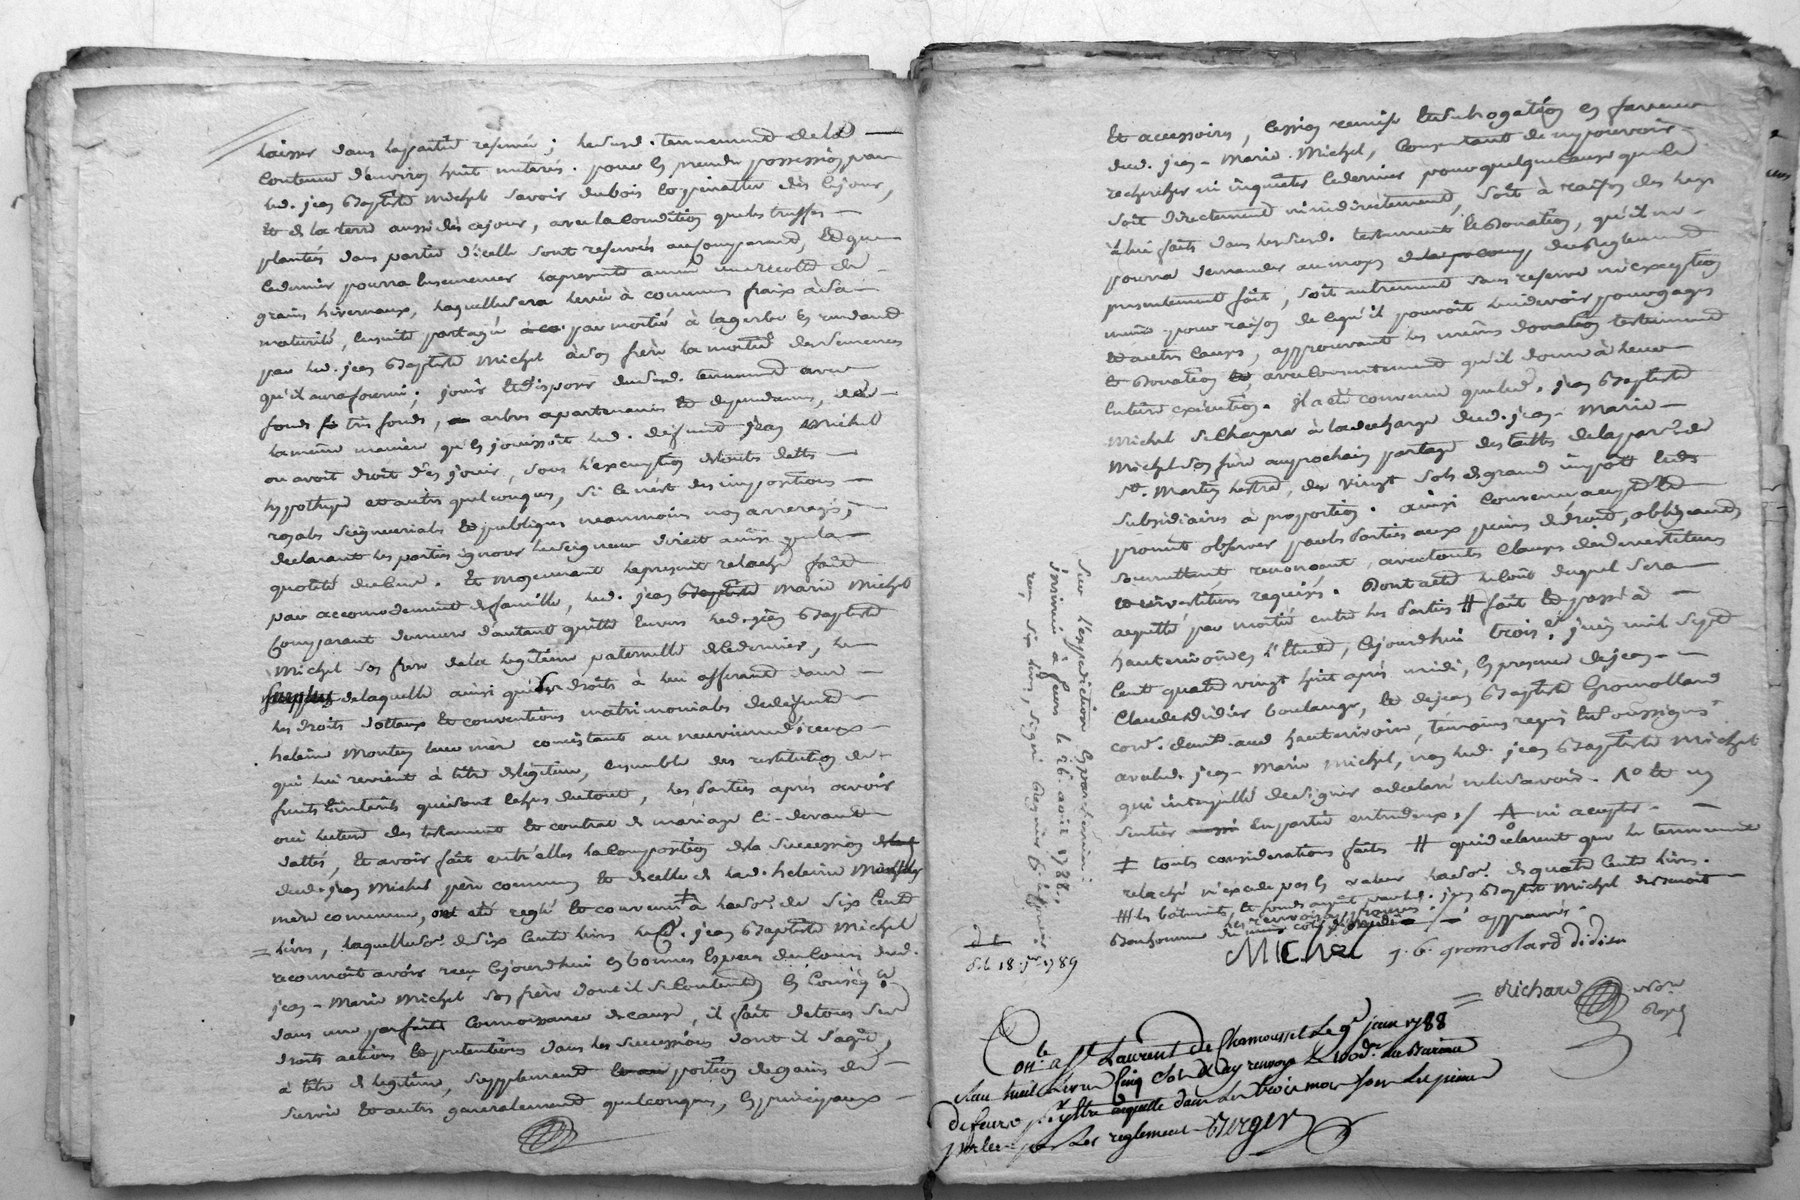 laisser dans la partie reservée ; led. tennement de la
contenue d'environ huit meterés. pour en prendre possession par
led. jean Baptiste Michel savoir du bois et pinattée dès ce jour,
et de la terre aussi dès ce jour, avec la condition que les truffes
plantées dans partie d'icelle sont reservées au comparant, et que
ce dernier pourra ensemencer la presente année une recolte de
grains hivernaux, laquelle sera levée à communs fraix à sa
maturité, ensuite partagée par moitié à la gerbe en rendant
par led. jean Baptiste Michel à son frère la moitié des semences
qu'il aura fourni ; jouir et disposer dud. tennement avec
fonds trés fonds, arbres apartenances et dépendances, de
la même manière qu'en jouissoit led. défunt jean Michel
ou avoit droit d'en jouir, sous l'exemption de toutes dettes
hypothéque et autres quelconques, si ce n'est des impositions
royales seigneuriales et publiques neanmoins non arreragés ;
declarant les parties ignorer le seigneur direct ainsi que la
quotité du cens. Et moyennant le present relache fait
par accomodement de famille, led. jean Marie Michel
Comparant demeure d'autant quitte envers led. jean Baptiste
Michel son frère de la légitime paternelle de ce dernier,
de laquelle ainsi que droits à lui afferant dans
les droits dottaux et conventions matrimoniales de défunte
heleine Montey leur mère consistant au neuvieme d'iceux
qui lui revient à titre de légitime, ensemble des restitution de
fruits et interets qui sont échus du tout, les parties après avoir
oui lecture des testament et contrat de mariage ci-devant
dattés, et avoir fait entr'elles la composition de la succession
dud. jean Michel père commun et de celle de lad. heleine
mère commune, ont été reglé et convenu ‡ à la so.e de six cent
livres, laquelle so.e de six cents livres led. jean Baptiste Michel
reconnoit avoir reçu ce jourdhui en bonnes especes du cours dud.
jean-Marie Michel son frère dont il se contente en conséq.ce
dans une parfaite connoissance de cause, il fait de tous ses
droits actions et prétentions dans les successions dont il s'agit,
à titre de légitime, supplement portion de gains de
survie et autres generalement quelconques, en principaux
et accessoires, cession remise et subrogation en faveur
dud. jean-Marie Michel, consentant de ne pouvoir
rechercher ni inquiéter ce dernier pour quelque cause que ce
soit directement ni indirectement, soit à raison des legs
à lui faits dans led. testament et donation, qu'il ne
pourra demander au moyen du reglement
presentement fait, soit autrement sans reserve ni exception
même pour raison de ce qu'il pouvoit lui devoir pour gages
et autres causes, approuvant les mêmes donation testament
et donation avec consentement qu'il donne à leur
entière exécution. il a été convenu que led. jean Baptiste
Michel se chargera à la decharge dud. jean-Marie
Michel son frère au prochain partage des tailles de la parr.sse de
St. Martin lestra, de vingt sols de grand impôt et des
subsidiaires à proportion. ainsi convenu accepté et
promit observer par les parties aux peines de droit, obligeants
soumettant renonçant, avec toutes clauses de devestitures
et investitures requises. Dont acte le coût duquel sera
acquitté par moitié entre les parties # fait et passé à
hauterivoire en l'étude, ce jourdhui trois juin mil sept
cent quatre vingt huit après midi, en presence de jean
Claude Didier boulanger, et de jean Baptiste Gromollard
cor. dem.t aud. hauterivoire, temoins requis et soussignés
avec led. jean-Marie Michel, non led. jean Baptiste Michel
qui interpellé de signer a declaré ne le savoir.
sentier en partie entredeux ni accepter
‡ toutes considerations faites # qui declarent que le tennement
relaché n'excede pas en valeur la so.e de quatre cents livres.
les bâtiments, et fonds jean Baptiste Michel
Bonhomme approuvés.
Michel j. b. gromolard didier
Richard not. Royal
Sur l'expedition en parchemin
insinuée à feurs le 26. août 1788,
reçu six livres, signé
d. l.
d. l. 18. 7.bre 1789
Con.lé a St Laurent de Chamousset le 9e juin 1788
reçu huit livres Cinq sols et ay renvoyé le 100e d. au Bureau
de feurs p.r y être acquitté dans les trois mois sous les peines
portées par les reglement Berger